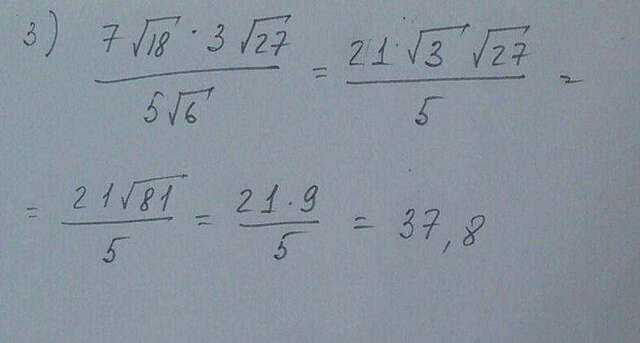 3) (7√18 · 3√27) / (5√6) = (21 · √3 √27) / 5 =
= (21√81) / 5 = (21 · 9) / 5 = 37,8